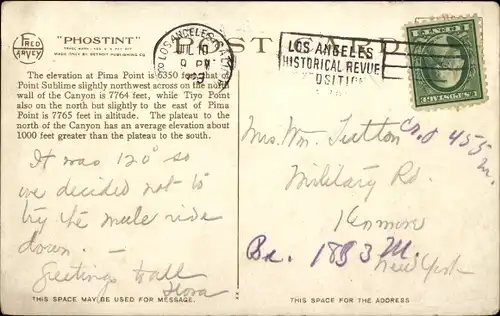 FRED HARVEY
"PHOSTINT"
TRADE MARK REG. U.S. PAT. OFF.
MADE ONLY BY DETROIT PUBLISHING CO.
POST CARD
LOS ANGELES, CAL.
JUL 10
9 PM
LOS ANGELES
HISTORICAL REVUE
The elevation at Pima Point is 6350 feet, that of
Point Sublime slightly northwest across on the north
wall of the Canyon is 7764 feet, while Tiyo Point
also on the north but slightly to the east of Pima
Point is 7765 feet in altitude. The plateau to the
north of the Canyon has an average elevation about
1000 feet greater than the plateau to the south.
It was 120° so
we decided not to
try the mule ride
down. —
Greetings to all
Flora
Mrs. Wm. Sutton
455
Military Rd.
Kenmore
1883
New York
THIS SPACE MAY BE USED FOR MESSAGE.
THIS SPACE IS FOR THE ADDRESS